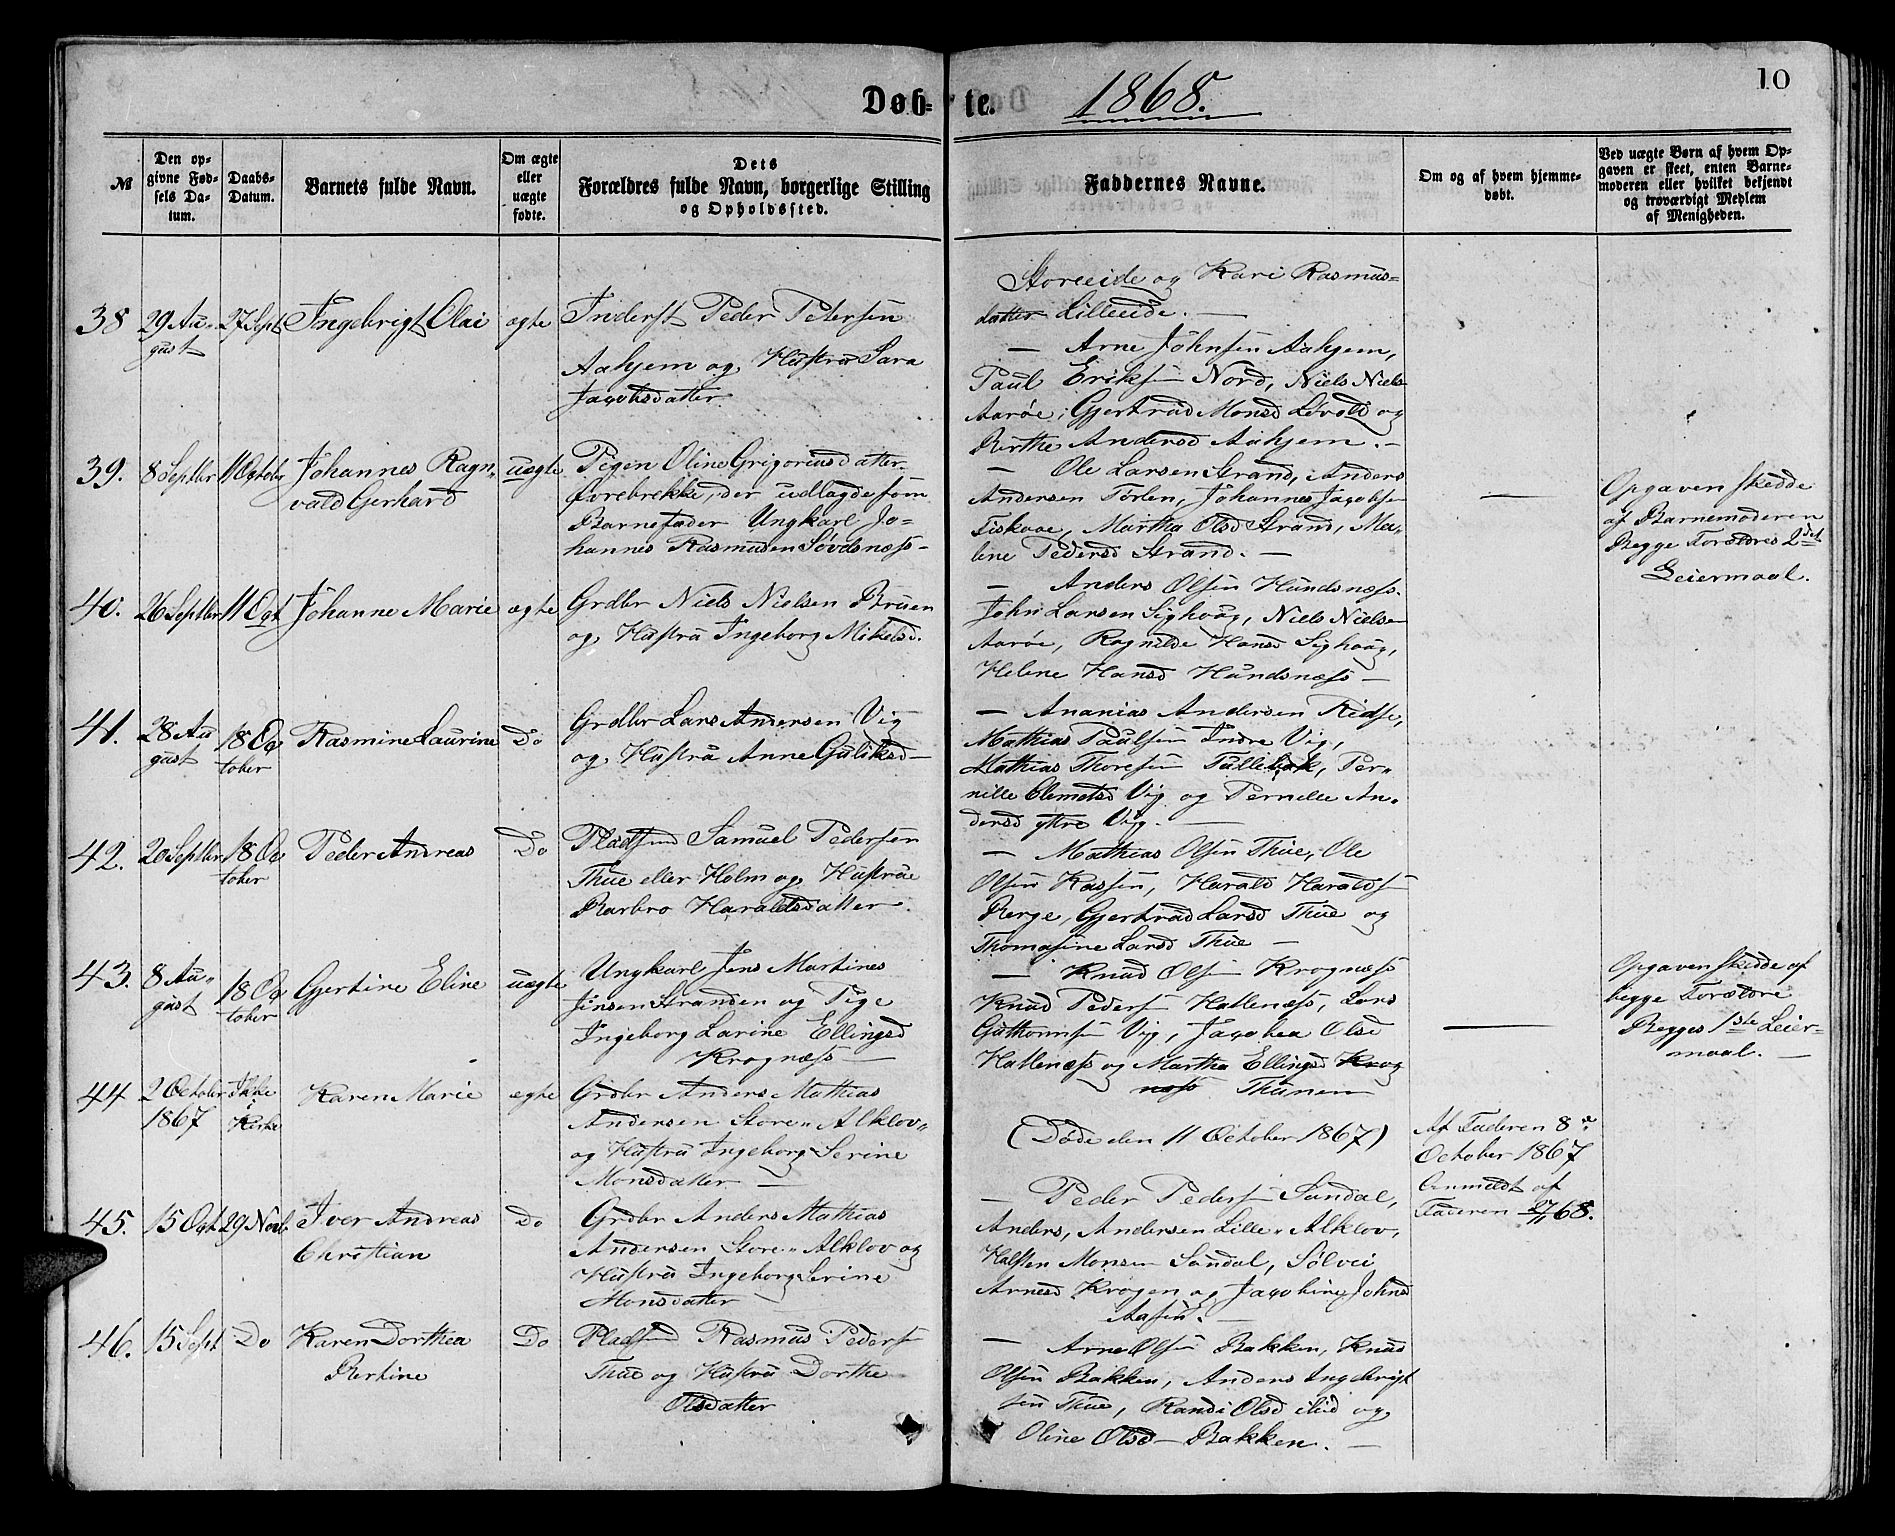 Døb- te. 1868. 10
№
Den opgivne Fødsels Datum.
Daabs-Datum.
Barnets fulde Navn.
Om ægte eller uægte fødte.
Dets Forældres fulde Navn, borgerlige Stilling og Opholdssted.
Faddernes Navne.
Om og af hvem hjemmedøbt.
Ved uægte Børn af hvem Opgaven er skeet, enten Barnemoderen eller hvilket bekjendt og troværdigt Medlem af Menigheden.
Storeeide og Kari Rasmus-
datter Lilleeide. —
38 29 Au- 27 Sept Ingebrigt Olai ægte Inderst Peder Petersen
gust
Aahjem og Hustru Sara
Jacobsdatter
— Arne Johnsen Aahjem,
Paul Eriksen Nord, Niels Niels
Aarøe, Gjertrud Monsd Løvold og
Birthe Andersd Aahjem. —
39. 8 Septbr 11 October Johannes Ragn- uægte Pigen Oline Grigoriusdatter
vald Gerhard
Forebrekke, der udlagde som
Barnefader Ungkarl Jo-
hannes Rasmusen Søvdsnæss —
— Ole Larsen Strand, Anders
Andersen Tørlen, Johannes Jacobsen
Fiskaae, Martha Olsd Strand, Ma-
lene Pedersd Strand. —
—
Opgaven skedde
af Barnemoderen
Begge Forældres 2det
Leiermaal.
40. 26 Septbr 11 Oct Johanne Marie ægte Grdbr Niels Nielsen Bruen
og Hustru Ingeborg Mikelsd.
— Anders Olsen Hundsnæss.
John Larsen Sighoug, Niels Nielsen
Aarøe, Ragnilde Hansd Sighoug,
Helene Hansd Hundsnæss —
41. 28 Au 18 Oc Rasmine Laurine Do Grdbr Lars Andersen Vig
gust tober
og Hustru Anne Guliksd —
— Ananias Andersen Ridse,
Mathias Paulsen Indre Vig,
Mathias Thoresen Tullebak, Per-
nille Clemetsd Vig og Pernille An-
dersd ytre Vig. —
42. 20 Septbr 18 Oc Peder Andreas Do Pladsmd Samuel Pedersen
tober
Thue eller Holm og Hustrue
Barbro Haraldsdatter.
— Mathias Olsen Thue, Ole
Olsen Rassen, Harald Haralds
Berge, Gjertrud Larsd Thue og
Thomasine Larsd Thue —
43. 8 Au- 18 Oc Gjertine Eline uægte Ungkarl Jens Martines
gust tober
Jensen Stranden og Pige
Ingeborg Larine Ellingsd
Krognæss —
— Knud Olsen Krognæss
Knud Pedersen Hatlenæss, Lars
Guttormsen Vig, Jacobea Olsd
Hatlenæss og Martha Ellingsd Krog
næss Thunem
—
Opgaven skedde af
begge Forældre
Begges 1ste Leier-
maal. —
44 2 October Ikke Karen Marie ægte Grdbr Anders Mathias
1867 i Kirke
Andersen Store-Alklov-
og Hustru Ingeborg Serine
Monsdatter —
(Døde den 11 October 1867)
Af Faderen 8de
October 1867
Anmeldt af
Faderen 27/11 68.
45. 15 Oct 29 Novb. Iver Andreas Do Grdbr Anders Mathias
Christian
Andersen Store-Alklov og
Hustru Ingeborg Serine
Monsdatter
— Peder Pedersen Sundal,
Anders, Andersen Lille-Alklov,
Halsten Monsen Sundal, Sølvei
Arnesd Krogen og Jacobine Johnsd
Aasen. —
46. 15 Sept Do Karen Dorthea Do Pladsmd Rasmus Peders
Bertine
Thue og Hustru Dorthe
Olsdatter
— Arne Olsen Bakken, Knud
Olsen Bakken, Anders Ingebrigt
sen Thue, Randi Olsd ibid og
Oline Olsd — Bakken. —